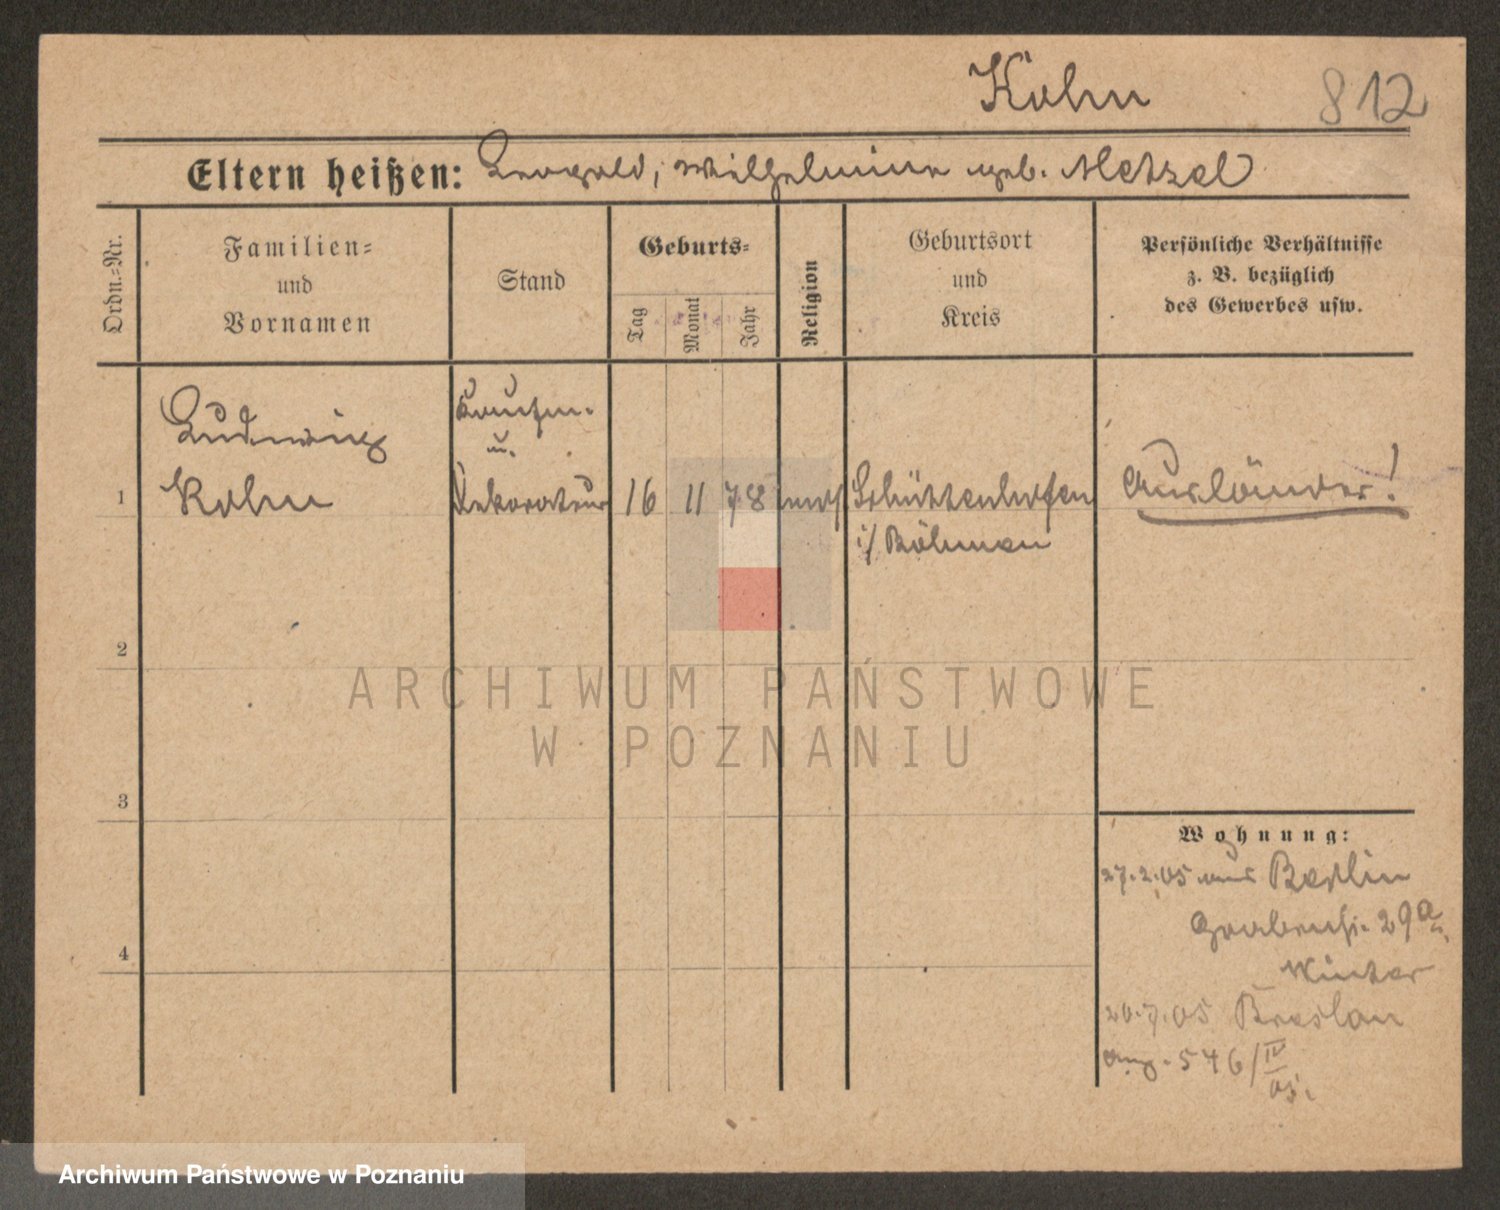 Kohn 812
Eltern heißen: Leopold, Wilhelmine geb. Metzel
Ordn.=Nr.
Familien=
und
Vornamen
Stand
Geburts=
Tag
Monat
Jahr
Religion
Geburtsort
und
Kreis
Persönliche Verhältnisse
z. B. bezüglich
des Gewerbes usw.
Ludwig
Kohn
Kaufm.
u.
Dekorateur
1
16 11 78 mos
Schüttenhofen
i/ Böhmen
Ausländer!
2
ARCHIWUM PAŃSTWOWE
W POZNANIU
3
4
Wohnung:
27.2.05 aus Berlin
Grabenstr. 29a
Winter
20.7.05 Breslau
546/IV
05.
Archiwum Państwowe w Poznaniu